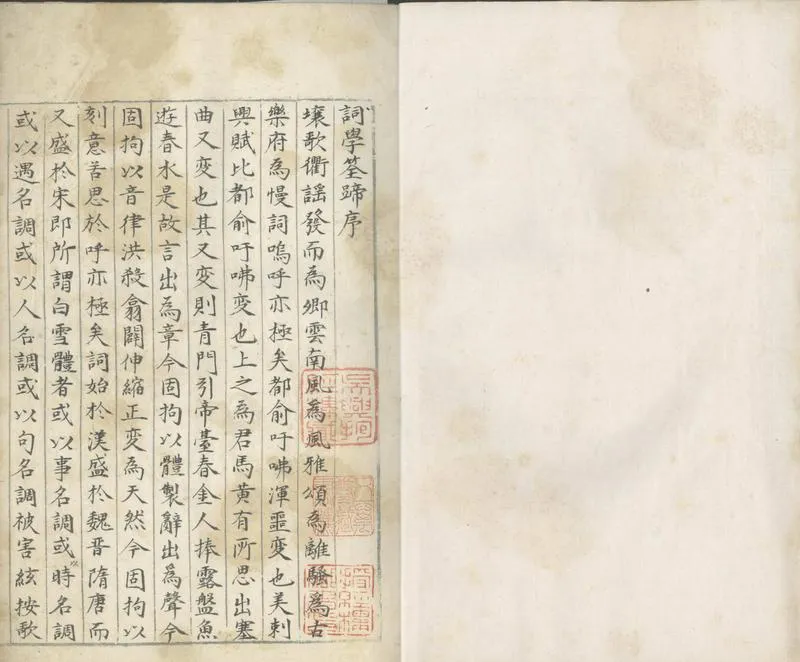 詞學筌蹄序
壤歌衢謡發而為卿雲南風為風雅頌為離騷為古
樂府為慢詞嗚呼亦極矣都俞吁咈渾噩變也美刺
興賦比都俞吁咈变也上之為君馬黄有所思出塞
曲又变也其又变則青門引帝臺春金人捧露盤魚
遊春水是故言出為章今固拘以體製辭出為聲今
固拘以音律洪殺翕闢伸縮正变為天然今固拘以
刻意苦思於呼亦極矣詞始於漢盛於魏晉隋唐而
又盛於宋即所謂白雪體者或以事名調或以時名調
或以遇名調或以人名調或以句名調被害絃按歌